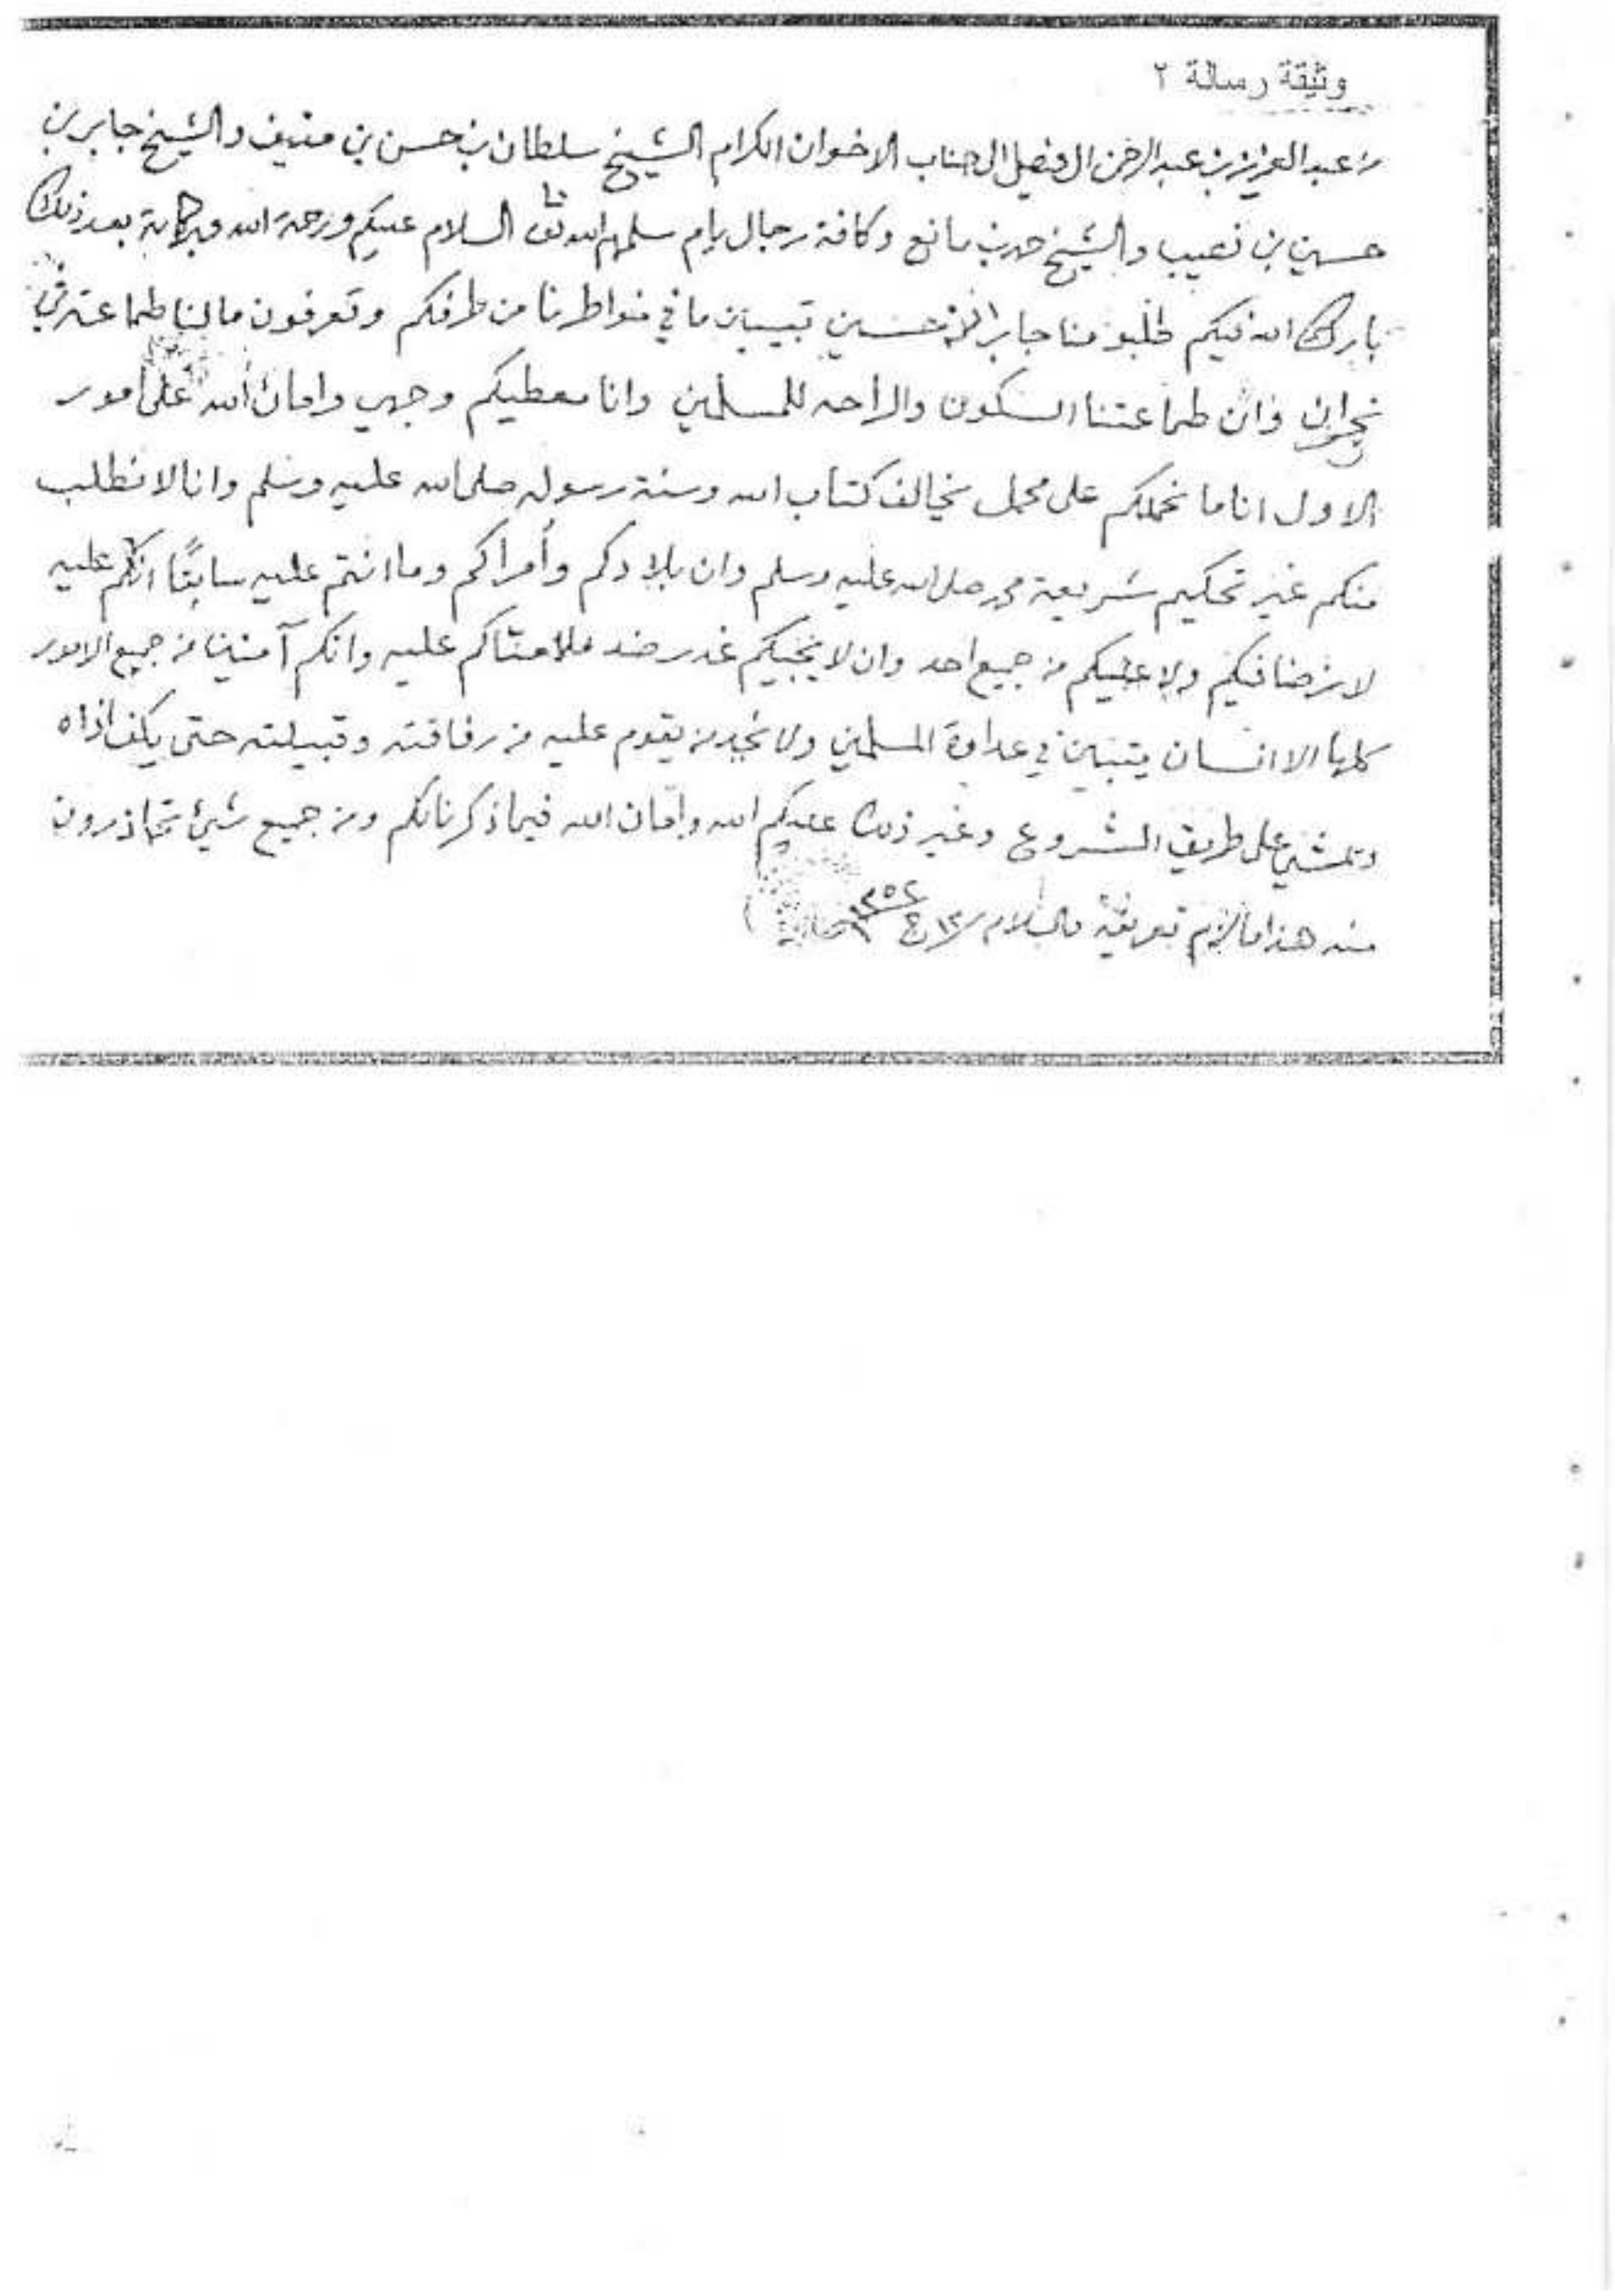 وثيقة رسالة ٢
من عبد العزيز بن عبد الرحمن ال فيصل الى جناب الاخوان الكرام الشيخ سلطان بن حسن بن منيف والشيخ جابر بن
حسين بن نصيب والشيخ حمد بن مانع وكافة رجال يام سلمهم الله تعالى السلام عليكم ورحمة الله وبركاته بعد ذلك
بارك الله فيكم طلبو منا جابر حسين تبيين ما في خواطرنا من طرفكم وتعرفون مالنا طماعة في
نجران وان طماعتنا السكون والراحه للمسلمين وانا معطيكم وجهي وامان الله على امور
الاول انا ما نحملكم على محمل يخالف كتاب الله وسنة رسوله صلى الله عليه وسلم وانا لا نطلب
منكم غير تحكيم شريعة محمد صلى الله عليه وسلم وان بلادكم وأمراكم وما انتم عليه سابقًا انكم عليه
لا نرضا فيكم ولا عليكم من جميع احد وان لا يجيكم غدر ضد عليه وانكم آمنين من جميع الامور
كلها الا انسان يتبين في عداوة المسلمين ولا نجد من يقوم عليه من رفاقته وقبيلته حتى يكف اذاه
وتمشي على طريق المشروع وغير ذلك عليكم الله وامان الله فيما ذكرنا لكم ومن جميع شيئ تحاذرون
منه هذا مالزم تعريفه والسلام ١٣٥٢